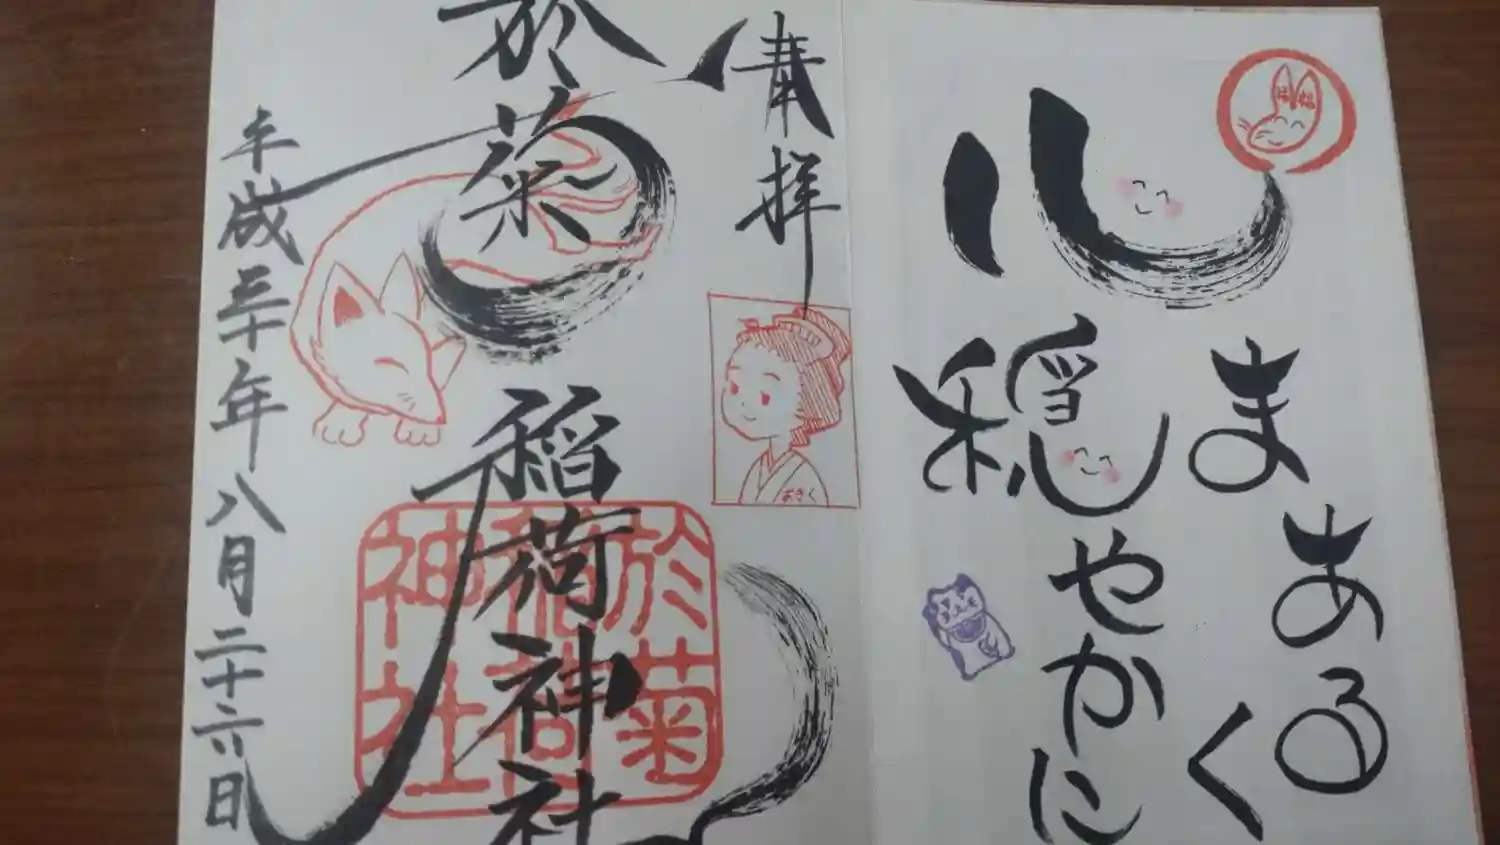 心
まあるく
穏やかに
奉拝
おきく
於菊稲荷神社
於菊
稲荷
神社
平成三十年八月二十六日